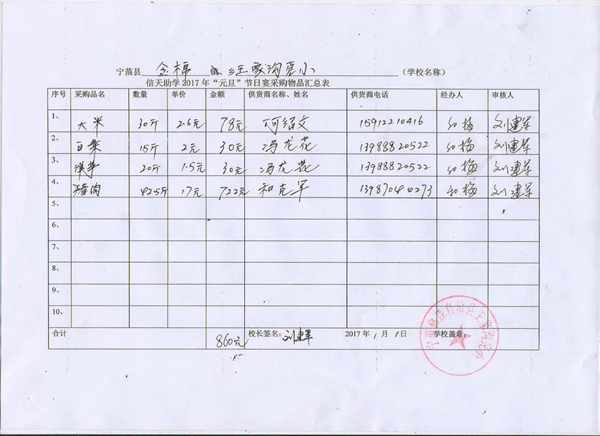 宁蒗县 金棉 镇、乡 王家沟完小 （学校名称）
信天助学 2017 年“元旦”节日宴采购物品汇总表
序号 采购品名 数量 单价 金额 供货商名称、姓名 供货商电话 经办人 审核人
1、 大米 30斤 2.6元 78元 阿绍文 15912210416 和梅 刘建军
2、 白菜 15斤 2元 30元 冯龙花 13988820522 和梅 刘建军
3、 洋芋 20斤 1.5元 30元 冯龙花 13988820522 和梅 刘建军
4、 猪肉 42.5斤 17元 722元 和克军 13987044273 和梅 刘建军
5、
6、
7、
8、
9、
10、
合计 860元 校长签名：刘建军 2017 年 1 月 1 日 学校盖章：